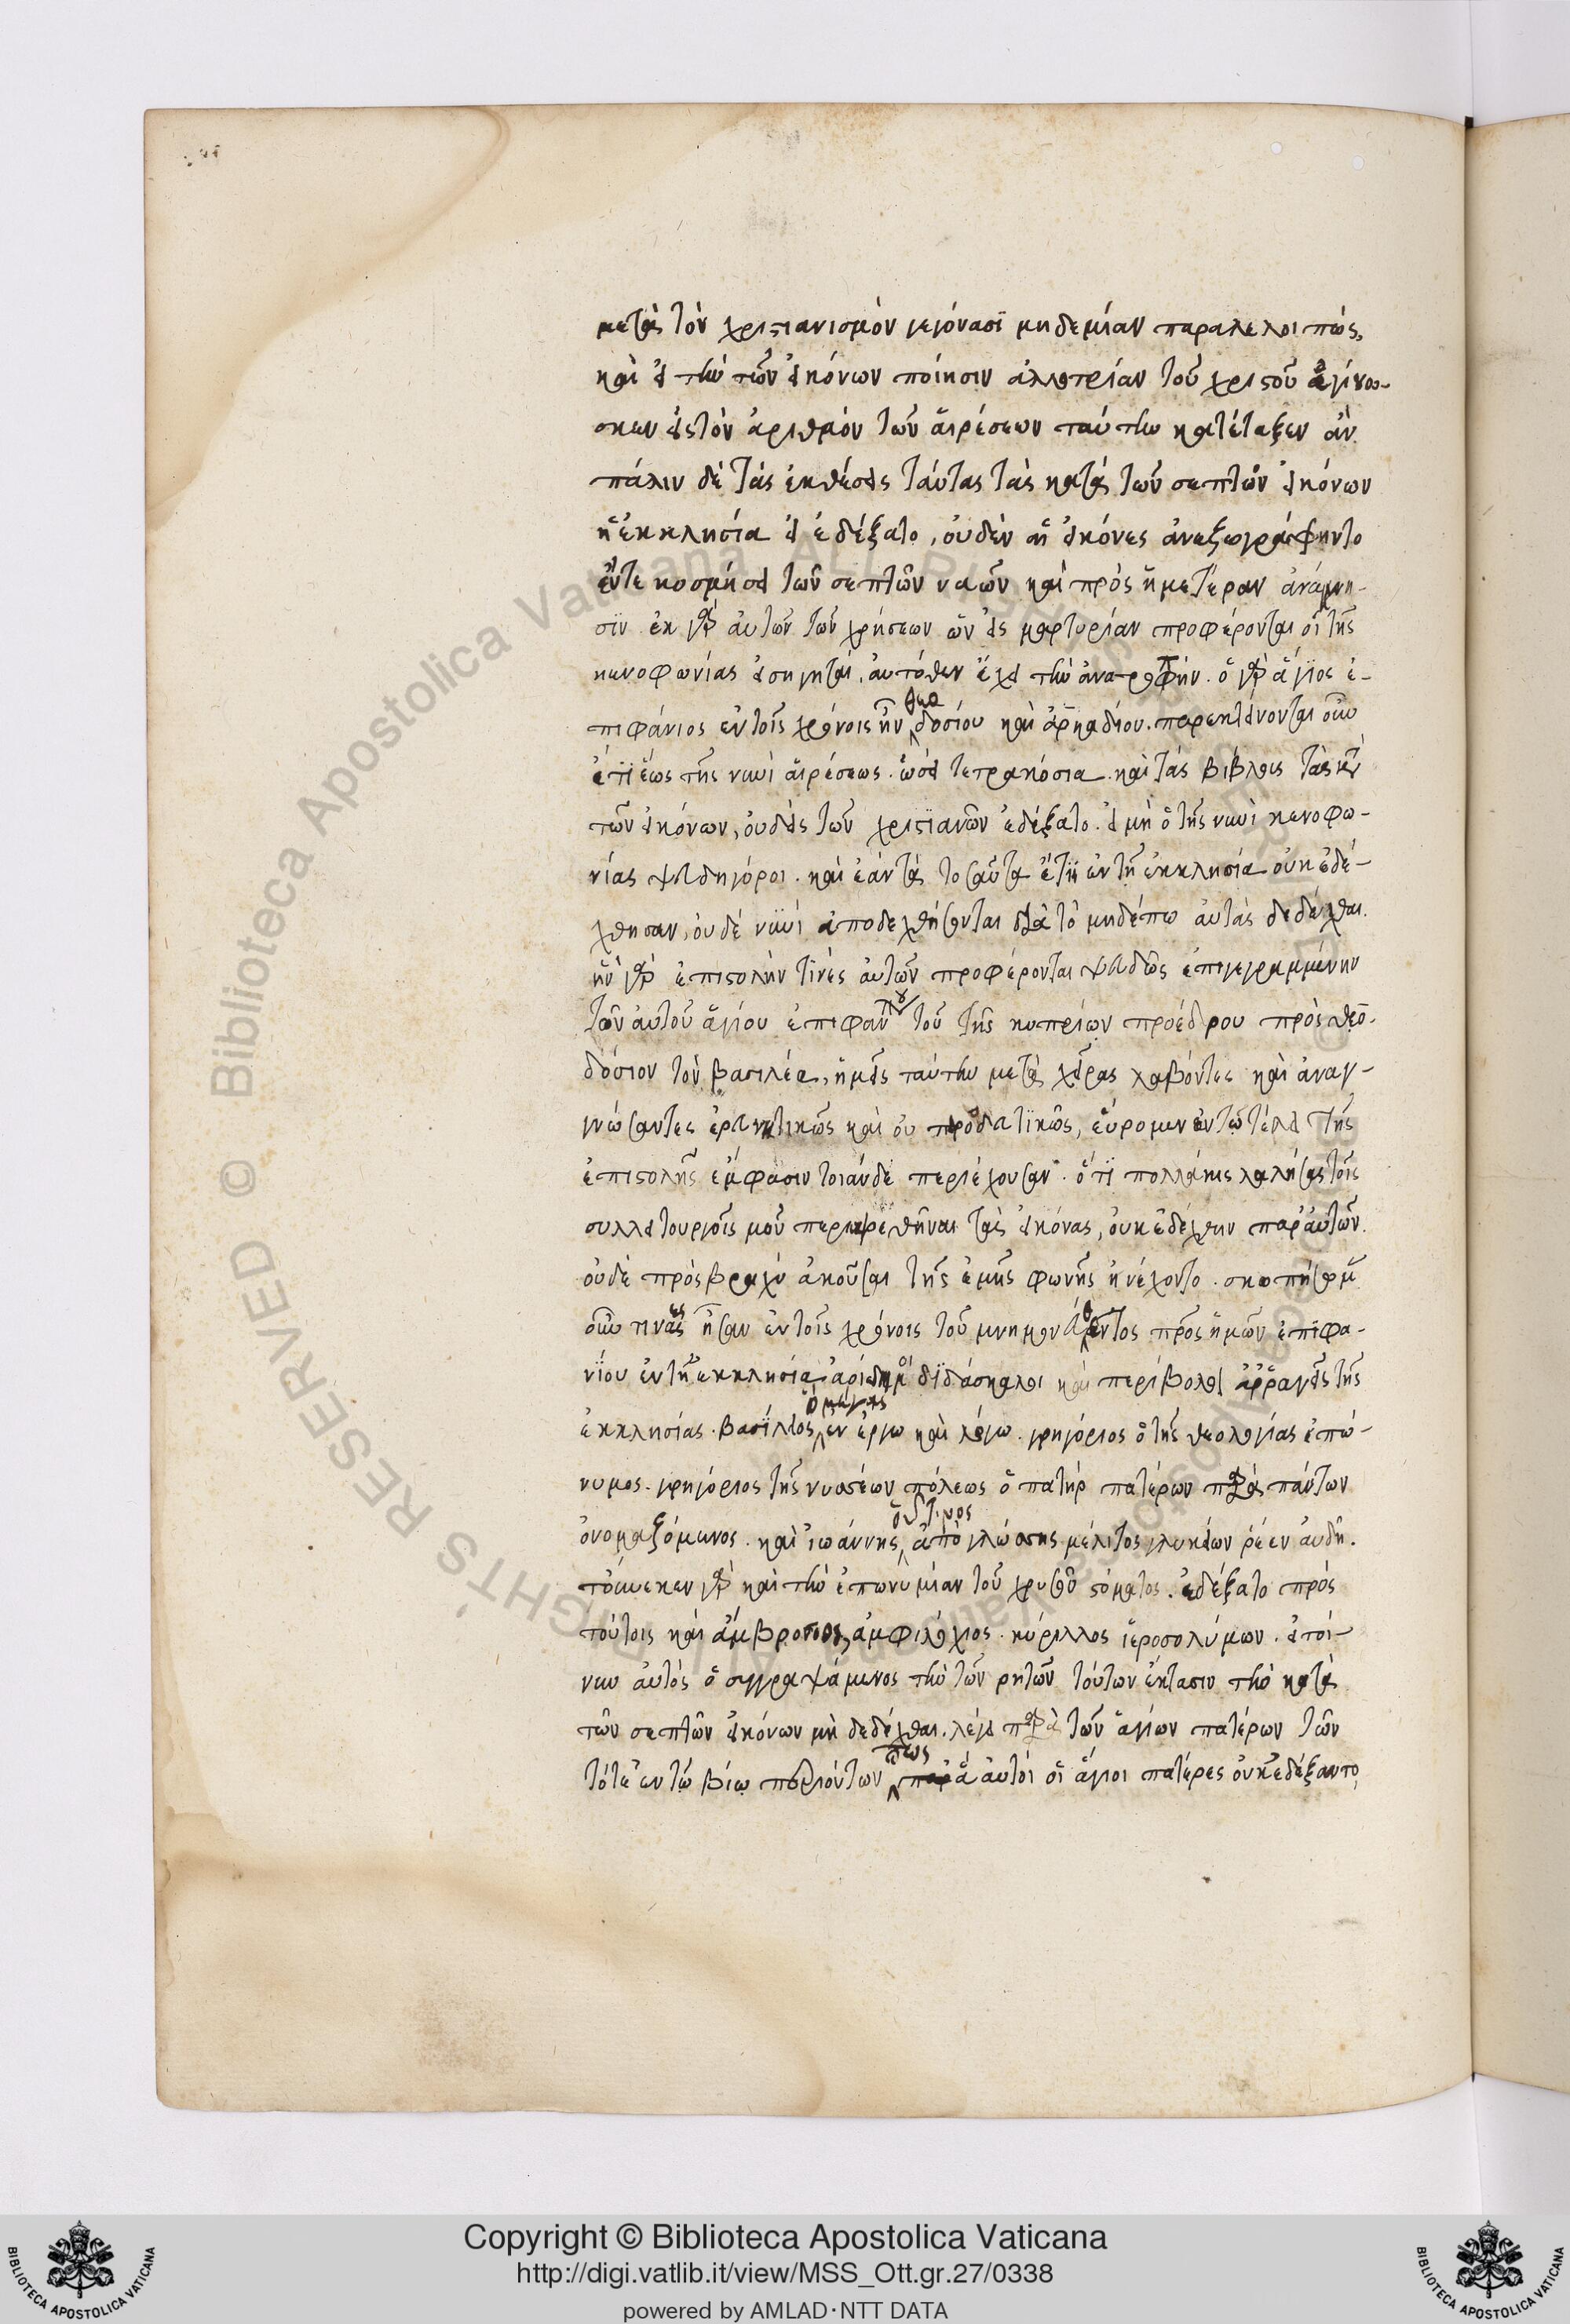 μετὰ τὸν χριστιανισμὸν γεγόνασϊ μηδεμίαν παραλελοιπώς,
καὶ εἰ τὴν τῶν εἰκόνων ποίησιν ἀλλοτρίαν τοῦ χριστοῦ ἐγίνω-
σκεν εἰς τὸν ἀριθμὸν τῶν αἱρέσεων ταύτην κατέταξεν ἄν
πάλιν δὲ τὰς ἐκθέσεις ταύτας τὰς κατὰ τῶν σεπτῶν εἰκόνων
ἡ ἐκκλησία εἰ ἐδέξατο, οὐδὲν αἱ εἰκόνες ἀνεζωγράφηντο
ἔντε κοσμήσει τῶν σεπτῶν ναῶν καὶ πρὸς ἡμετέραν ἀνάμνη-
σϊν ἐκ γὰρ αὐτῶν τῶν χρήσεων ὧν εἰς μαρτυρίαν προφέρονται οἱ τῆς
κενοφωνίας εἰσηγηταί, αὐτόθεν ἔχει τὴν ἀνατροπήν. ὁ γὰρ ἅγϊος ἐ-
πιφάνιος ἐν τοῖς χρόνοις ἦν θεοδοσίου καὶ ἀρκαδίου. παρεκτείνονται οὖν
ἔτϊ ἕως τῆς νυνὶ αἱρέσεως. ὡσεὶ τετρακόσια. καὶ τὰς βίβλους τὰς κατὰ
τῶν εἰκόνων, οὐδεὶς τῶν χριστϊανῶν ἐδέξατο. εἰ μὴ ὁ τῆς νυνὶ κενοφω-
νίας ψευδηγόροι. καὶ ἐάν τὰ τοσαῦτα ἔτϊ ἐν τῇ ἐκκλησία οὐκ ἐδέ-
χθησαν, οὐδὲ νϋνὶ ἀποδεχθήσονται διὰ τὸ μηδέπω αὐτὰς δεδέχθαι.
ἣν γὰρ ἐπιστολὴν τϊνὲς αὐτῶν προφέρονται ψευδῶς ἐπιγεγραμμένην
τῶν αὐτοῦ ἁγίου ἐπιφανίου τοῦ τῆς κυπρίων προέδρου πρὸς θεο-
δόσιον τὸν βασιλέα, ἡμεῖς ταύτην μετὰ χεῖρας λαβόντες καὶ ἀναγ-
νώσαντες ἐρευνητικῶς καὶ οὐ παροδευτϊκῶς, εὕρομεν ἐν τῷ τέλει τῆς
ἐπιστολῆς ἔμφασιν τοιάνδε περιέχουσαν. ὅτϊ πολλάκις λαλήσας τοῖς
συλλειτουργοῖς μοῦ περιαιρεθῆναι τὰς εἰκόνας, οὐκ ἐδέχθην παρ' αὐτῶν.
οὐδὲ πρὸς βραχὺ ἀκοῦσαι τῆς ἐμῆς φωνῆς ἠνέχοντο. σκοπήσωμεν
οὖν τινὲς ἦσαν ἐν τοῖς χρόνοις τοῦ μνημονευθέντος πατρὸς ἡμῶν ἐπϊφα-
νϊου ἐν τῇ ἐκκλησία ἀρίδημοι δϊδάσκαλοι καὶ περίβολοι ἀρραγεῖς τῆς
ἐκκλησίας. βασϊλειος ὁ μέγας ἐν ἔργω καὶ λόγω. γρηγόριος ὁ τῆς θεολογίας ἐπώ-
νυμος. γρηγόριος τῆς νυσσέων πόλεως ὁ πατὴρ πατέρων παρὰ πάντων
ὀνομαζόμενος. καὶ ἰωάννης, οὗτινος ἀπὸ γλώσσης μέλιτος γλυκείων ῥέεν αὐδή.
τοὔνεκεν γὰρ καὶ τὴν ἐπωνυμίαν τοῦ χρυσοστόματος. ἐδέξατο πρὸς
τούτοις καὶ ἀμβρόσιος, ἀμφιλόχιος. κύριλλος ἱεροσολύμων. εἰ τοί-
νυν αὐτὸς ὁ συγγραψάμενος τὴν τῶν ρητῶν τούτων ἔκτασιν τὴν κατὰ
τῶν σεπτῶν εἰκόνων μὴ δεδέχθαι. λέγει παρὰ τῶν ἁγίων πατέρων τῶν
τότε ἐν τῷ βίω περιόντων πῶς ἃ αὐτοὶ οἱ ἅγιοι πατέρες οὐκ ἐδέξαντο
Copyright © Biblioteca Apostolica Vaticana
http://digi.vatlib.it/view/MSS_Ott.gr.27/0338
powered by AMLAD·NTT DATA